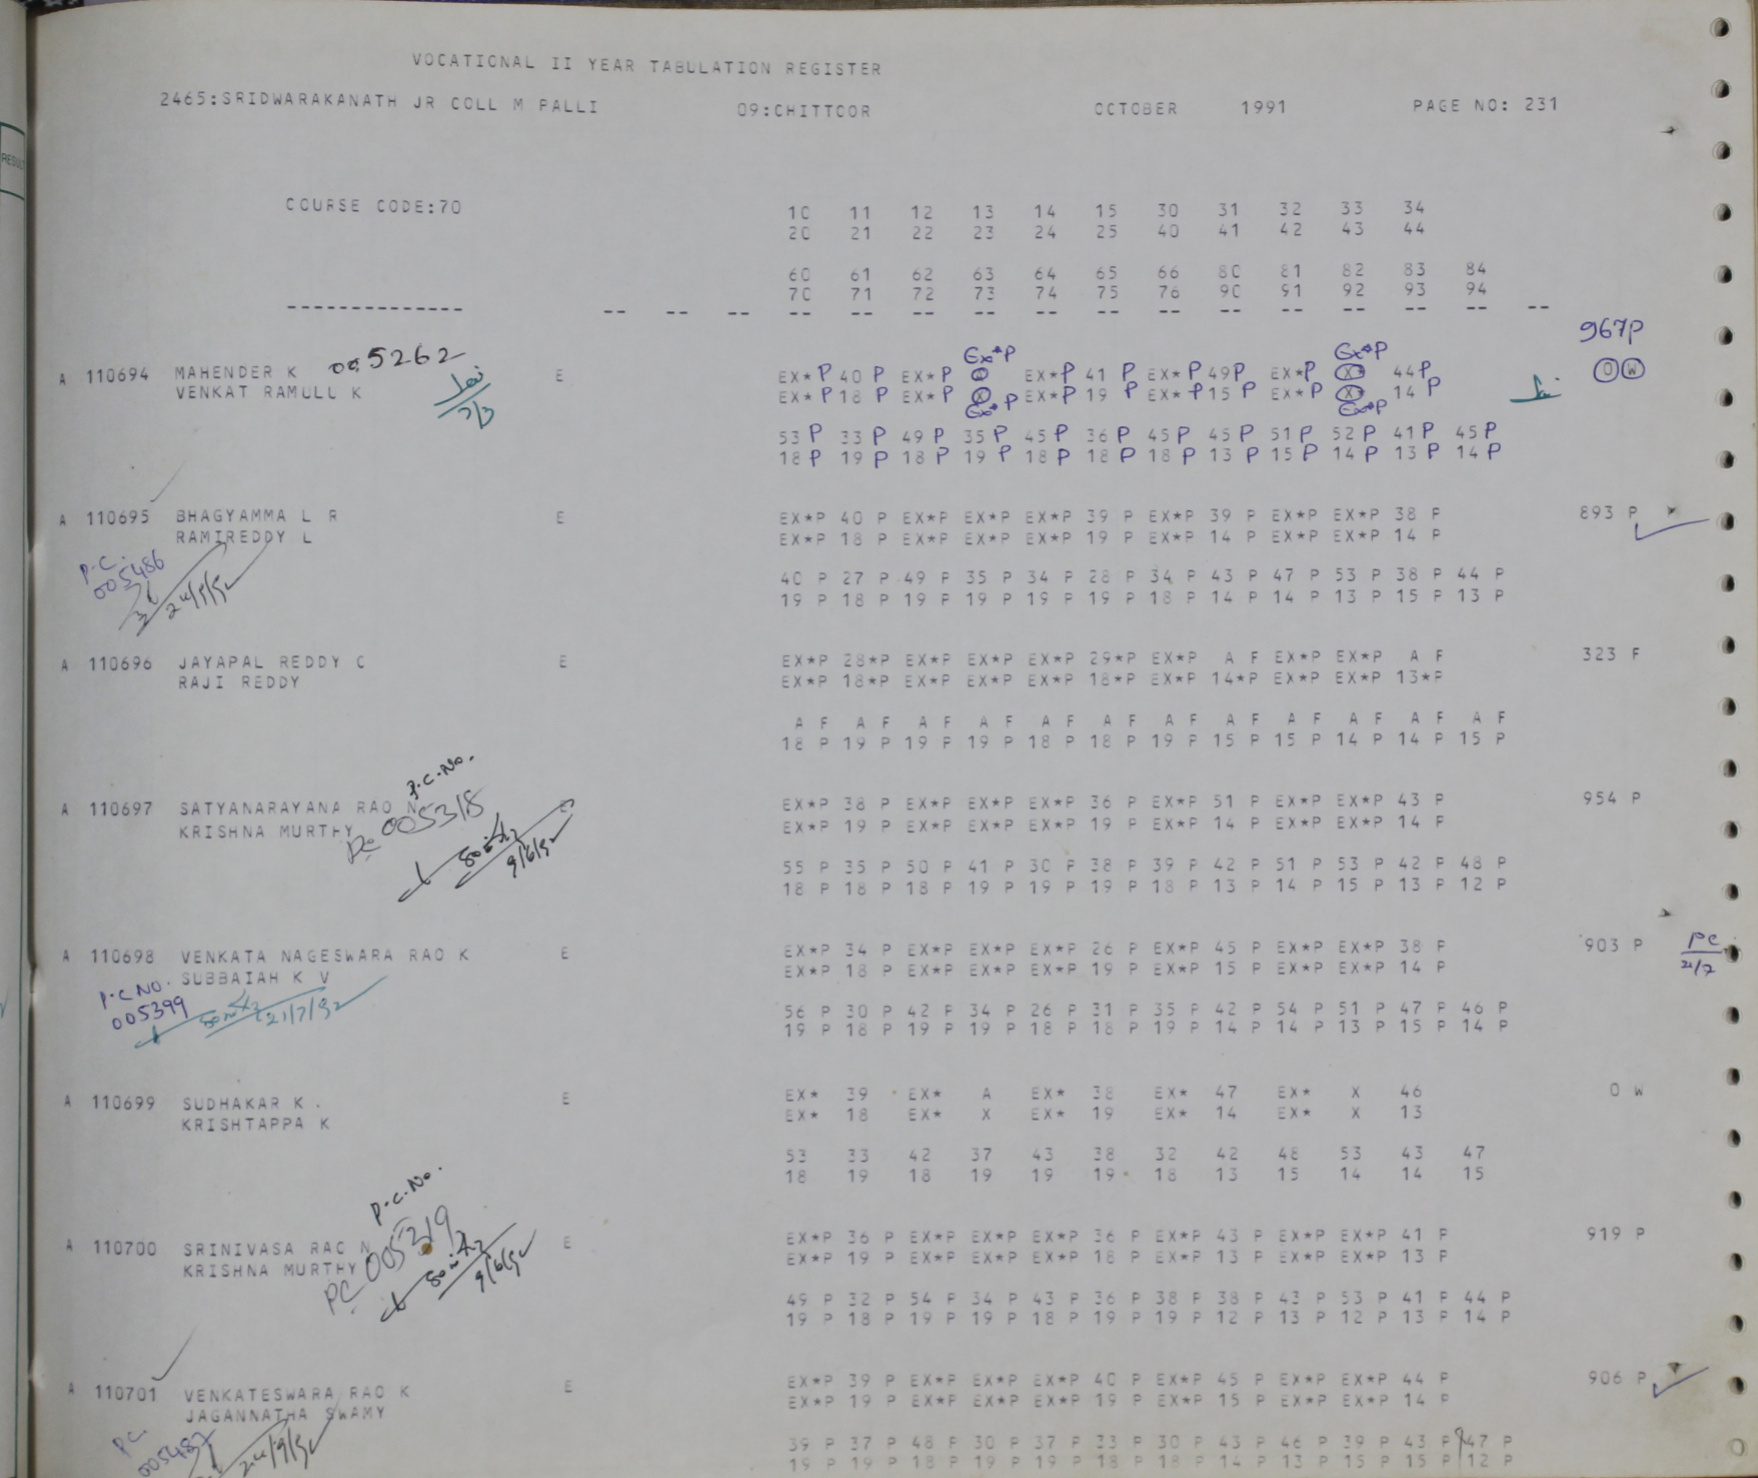 VOCATIONAL II YEAR TABULATION REGISTER
2465:SRIDWARAKANATH JR COLL M PALLI 09:CHITTOOR OCTOBER 1991 PAGE NO: 231
COURSE CODE:70 10 11 12 13 14 15 30 31 32 33 34
20 21 22 23 24 25 40 41 42 43 44
60 61 62 63 64 65 66 80 81 82 83 84
70 71 72 73 74 75 76 90 91 92 93 94
-------------- -- -- -- -- -- -- -- -- -- -- -- -- -- -- -- --
967P
Ex*P Ex*P
A 110694 MAHENDER K 005262 E EX*P 40 P EX*P EX*P 41 P EX*P 49P EX*P 44P OW
VENKAT RAMULL K EX*P 18 P EX*P EX*P 19 P EX*P 15 P EX*P 14 P
Ex*P Ex*P
53 P 33 P 49 P 35 P 45 P 36 P 45 P 45 P 51 P 52 P 41 P 45 P
18 P 19 P 18 P 19 P 18 P 18 P 18 P 13 P 15 P 14 P 13 P 14 P
A 110695 BHAGYAMMA L R E EX*P 40 P EX*P EX*P EX*P 39 P EX*P 39 P EX*P EX*P 38 P 893 P
RAMIREDDY L EX*P 18 P EX*P EX*P EX*P 19 P EX*P 14 P EX*P EX*P 14 P
P.C.
005486
40 P 27 P 49 P 35 P 34 P 28 P 34 P 43 P 47 P 53 P 38 P 44 P
19 P 18 P 19 P 19 P 19 P 19 P 18 P 14 P 14 P 13 P 15 P 13 P
A 110696 JAYAPAL REDDY C E EX*P 28*P EX*P EX*P EX*P 29*P EX*P A F EX*P EX*P A F 323 F
RAJI REDDY EX*P 18*P EX*P EX*P EX*P 18*P EX*P 14*P EX*P EX*P 13*P
A F A F A F A F A F A F A F A F A F A F A F A F
18 P 19 P 19 P 19 P 18 P 18 P 19 P 15 P 15 P 14 P 14 P 15 P
P.C.No.
A 110697 SATYANARAYANA RAO N E EX*P 38 P EX*P EX*P EX*P 36 P EX*P 51 P EX*P EX*P 43 P 954 P
KRISHNA MURTHY Pc 005318 EX*P 19 P EX*P EX*P EX*P 19 P EX*P 14 P EX*P EX*P 14 P
9/6/92
55 P 35 P 50 P 41 P 30 P 38 P 39 P 42 P 51 P 53 P 42 P 48 P
18 P 18 P 18 P 19 P 19 P 19 P 18 P 13 P 14 P 15 P 13 P 12 P
A 110698 VENKATA NAGESWARA RAO K E EX*P 34 P EX*P EX*P EX*P 26 P EX*P 45 P EX*P EX*P 38 P 903 P PC
SUBBAIAH K V EX*P 18 P EX*P EX*P EX*P 19 P EX*P 15 P EX*P EX*P 14 P
P.C NO.
005399 21/7/92
56 P 30 P 42 P 34 P 26 P 31 P 35 P 42 P 54 P 51 P 47 P 46 P
19 P 18 P 19 P 19 P 18 P 18 P 19 P 14 P 14 P 13 P 15 P 14 P
A 110699 SUDHAKAR K . E EX* 39 EX* A EX* 38 EX* 47 EX* X 46 0 W
KRISHTAPPA K EX* 18 EX* X EX* 19 EX* 14 EX* X 13
53 33 42 37 43 38 32 42 48 53 43 47
18 19 18 19 19 19 18 13 15 14 14 15
P.C.No.
A 110700 SRINIVASA RAO N E EX*P 36 P EX*P EX*P EX*P 36 P EX*P 43 P EX*P EX*P 41 P 919 P
KRISHNA MURTHY PC 005319 EX*P 19 P EX*P EX*P EX*P 18 P EX*P 13 P EX*P EX*P 13 P
9/6/92
49 P 32 P 54 P 34 P 43 P 36 P 38 P 38 P 43 P 53 P 41 P 44 P
19 P 18 P 19 P 19 P 18 P 19 P 19 P 12 P 13 P 12 P 13 P 14 P
A 110701 VENKATESWARA RAO K E EX*P 39 P EX*P EX*P EX*P 40 P EX*P 45 P EX*P EX*P 44 P 906 P
JAGANNATHA SWAMY EX*P 19 P EX*P EX*P EX*P 19 P EX*P 15 P EX*P EX*P 14 P
PC
005487
39 P 37 P 48 P 30 P 37 P 33 P 30 P 43 P 46 P 39 P 43 P 47 P
19 P 19 P 18 P 19 P 19 P 18 P 18 P 14 P 13 P 15 P 15 P 12 P